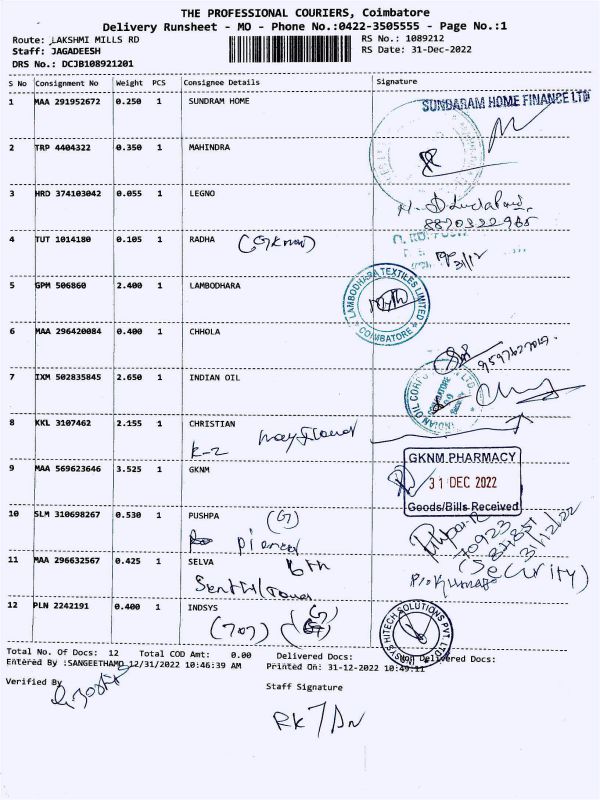 THE PROFESSIONAL COURIERS, Coimbatore
Delivery Runsheet - MO - Phone No.:0422-3505555 - Page No.:1
Route: LAKSHMI MILLS RD RS No.: 1089212
Staff: JAGADEESH RS Date: 31-Dec-2022
DRS No.: DCJB108921201
S No Consignment No Weight PCS Consignee Details Signature
1 MAA 291952672 0.250 1 SUNDRAM HOME SUNDARAM HOME FINANCE LTD
2 TRP 4404322 0.350 1 MAHINDRA
3 HRD 374103042 0.055 1 LEGNO
4 TUT 1014180 0.105 1 RADHA 31/12
5 GPM 506860 2.400 1 LAMBODHARA LAMBODHARA TEXTILES LIMITED COIMBATORE
6 MAA 296420084 0.400 1 CHHOLA
7 IXM 502835845 2.650 1 INDIAN OIL
8 KKL 3107462 2.155 1 CHRISTIAN
K-2
9 MAA 569623646 3.525 1 GKNM
GKNM PHARMACY
31 DEC 2022
Goods/Bills Received
10 SLM 310698267 0.530 1 PUSHPA (G)
70923
84851
31/12/22
(Security)
11 MAA 296632567 0.425 1 SELVA 6th
12 PLN 2242191 0.400 1 INDSYS (G)
(707)
INDSYS HITECH SOLUTIONS PVT LTD
Total No. Of Docs: 12 Total COD Amt: 0.00 Delivered Docs: Non Delivered Docs:
Entered By :SANGEETHAMO 12/31/2022 10:46:39 AM Printed On: 31-12-2022 10:49:11
Verified By
Staff Signature